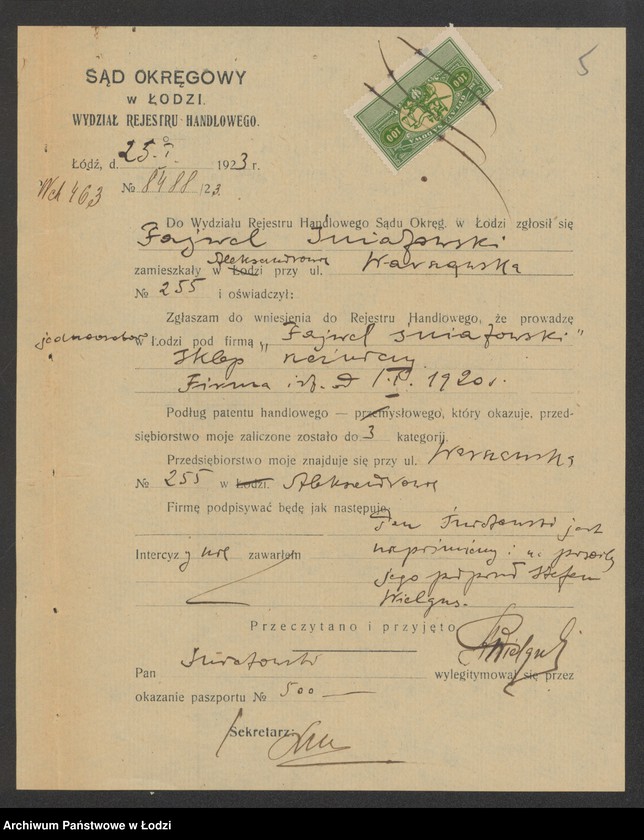 5
SĄD OKRĘGOWY
w ŁODZI.
WYDZIAŁ REJESTRU HANDLOWEGO.
100 100
Łódź, d. 25.I. 1923 r.
№ 8488/23.
Do Wydziału Rejestru Handlowego Sądu Okręg. w Łodzi zgłosił się
Fajwel Śniatowski
zamieszkały w Łodzi Aleksandrowie przy ul. Warszawska
№ 255 i oświadczył:
Zgłaszam do wniesienia do Rejestru Handlowego, że prowadzę
jednoosobowo
w Łodzi pod firmą „Fajwel Śniatowski"
Sklep rzeźniczy
Firma istn. od 1.I. 1920 r.
Podług patentu handlowego — przemysłowego, który okazuje, przed-
siębiorstwo moje zaliczone zostało do 3 kategorji.
Przedsiębiorstwo moje znajduje się przy ul. Warszawska
№ 255 w Łodzi. Aleksandrowie
Firmę podpisywać będę jak następuje:
Pan Śniatowski jest
niepiśmienny i na prośbę
jego podpisał Stefan
Wielgus.
Intercyzy nie zawarłem
Przeczytano i przyjęto
SWielgus
Pan Śniatowski wylegitymował się przez
okazanie paszportu № 500 —
Sekretarz:
Archiwum Państwowe w Łodzi